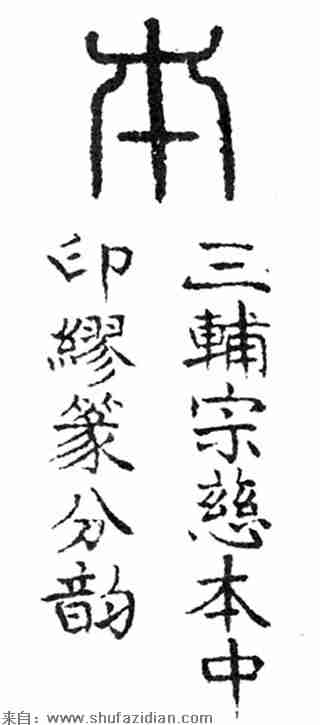 本
三輔宗慈本中
印繆篆分韵
来自：www.shufazidian.com